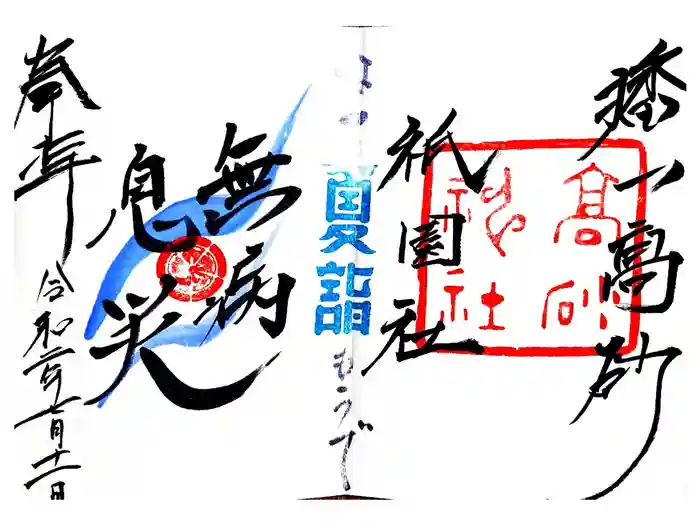 播一高砂
高砂
祇社
祇園社
夏詣
もうで
無病
息災
奉拝
令和二年七月十一日